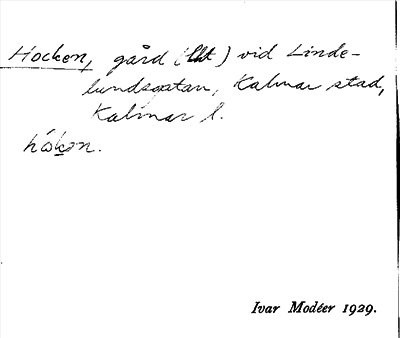 Hocken, gård (lht) vid Linde-
lundsgatan, Kalmar stad,
Kalmar l.
håkən.
Ivar Modéer 1929.